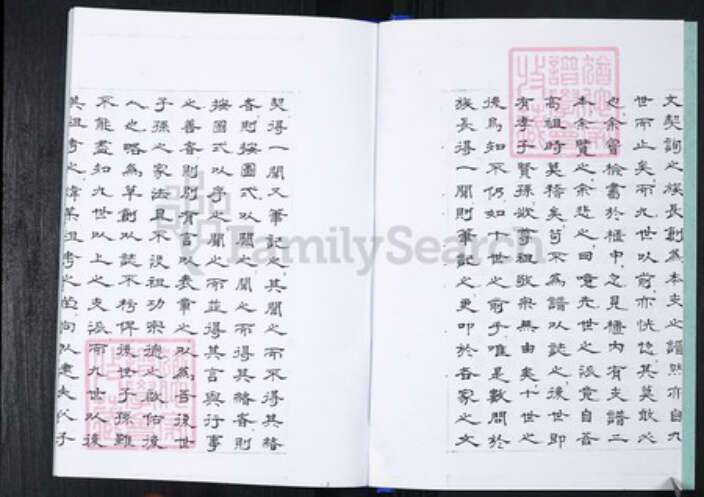 文契詢之族長創為本支之譜然亦自九
世而止矣而九世以前亦恍惚其莫敢必
也余嘗檢書於櫃中忽見櫃內有支譜二
本余覽之余悲之曰噫先世之派竟自吾
高祖時莫稽矣苟不為譜以誌之後世即
有孝子賢孫欲尊祖敬宗無由矣十世之
後烏知不仍如十世之前乎唯是數問於
族長得一聞則筆記之更叩於各家之文
契得一聞又筆記之其聞之而不得其緒
者則按圖式以闕之聞之而得其緒者則
按圖式以序之聞之而並得其言與行事
之善者則別有言以表章之以為吾後世
子孫之家法且不沒祖功宗德之啟佑後
人之略為草創以誌不朽俾後世子孫雖
不能盡如九世以上之支派而九世以後
其祖考之諱某祖考之
FamilySearch